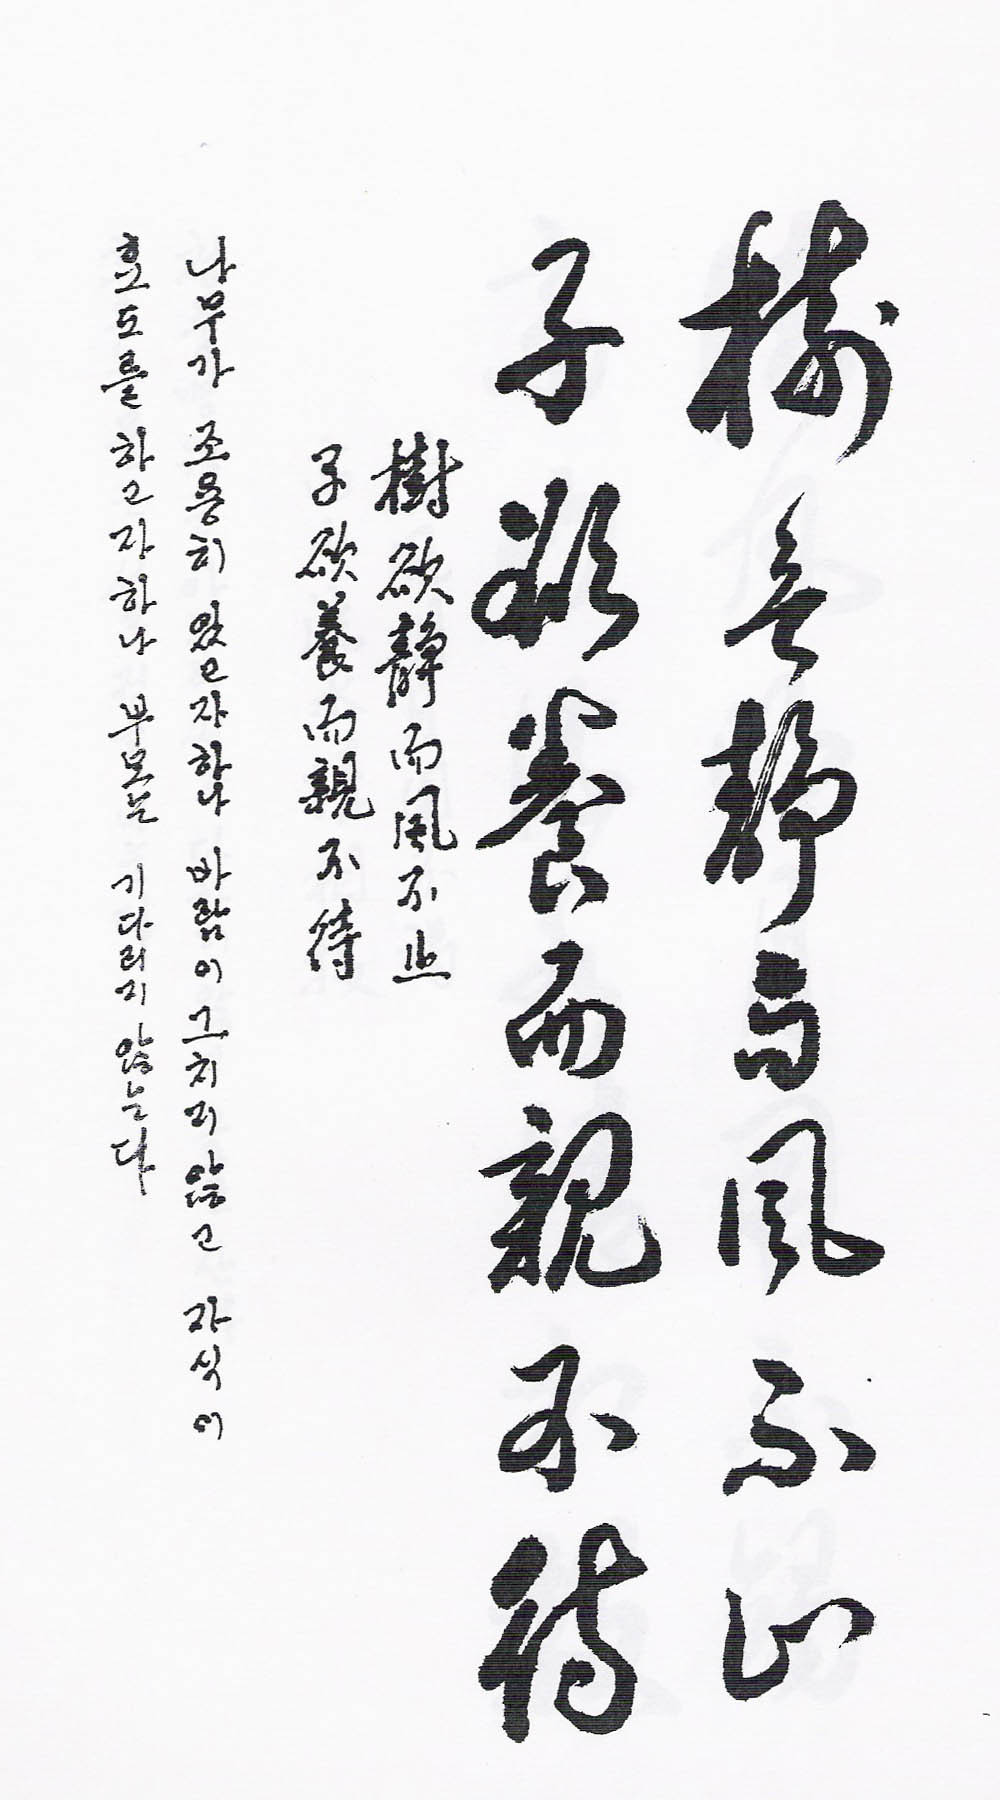 樹欲靜而風不止
子欲養而親不待
樹欲靜而風不止
子欲養而親不待
나무가 조용히 있고자하나 바람이 그치지 않고 자식이
효도를 하고자하나 부모는 기다리지 않는다